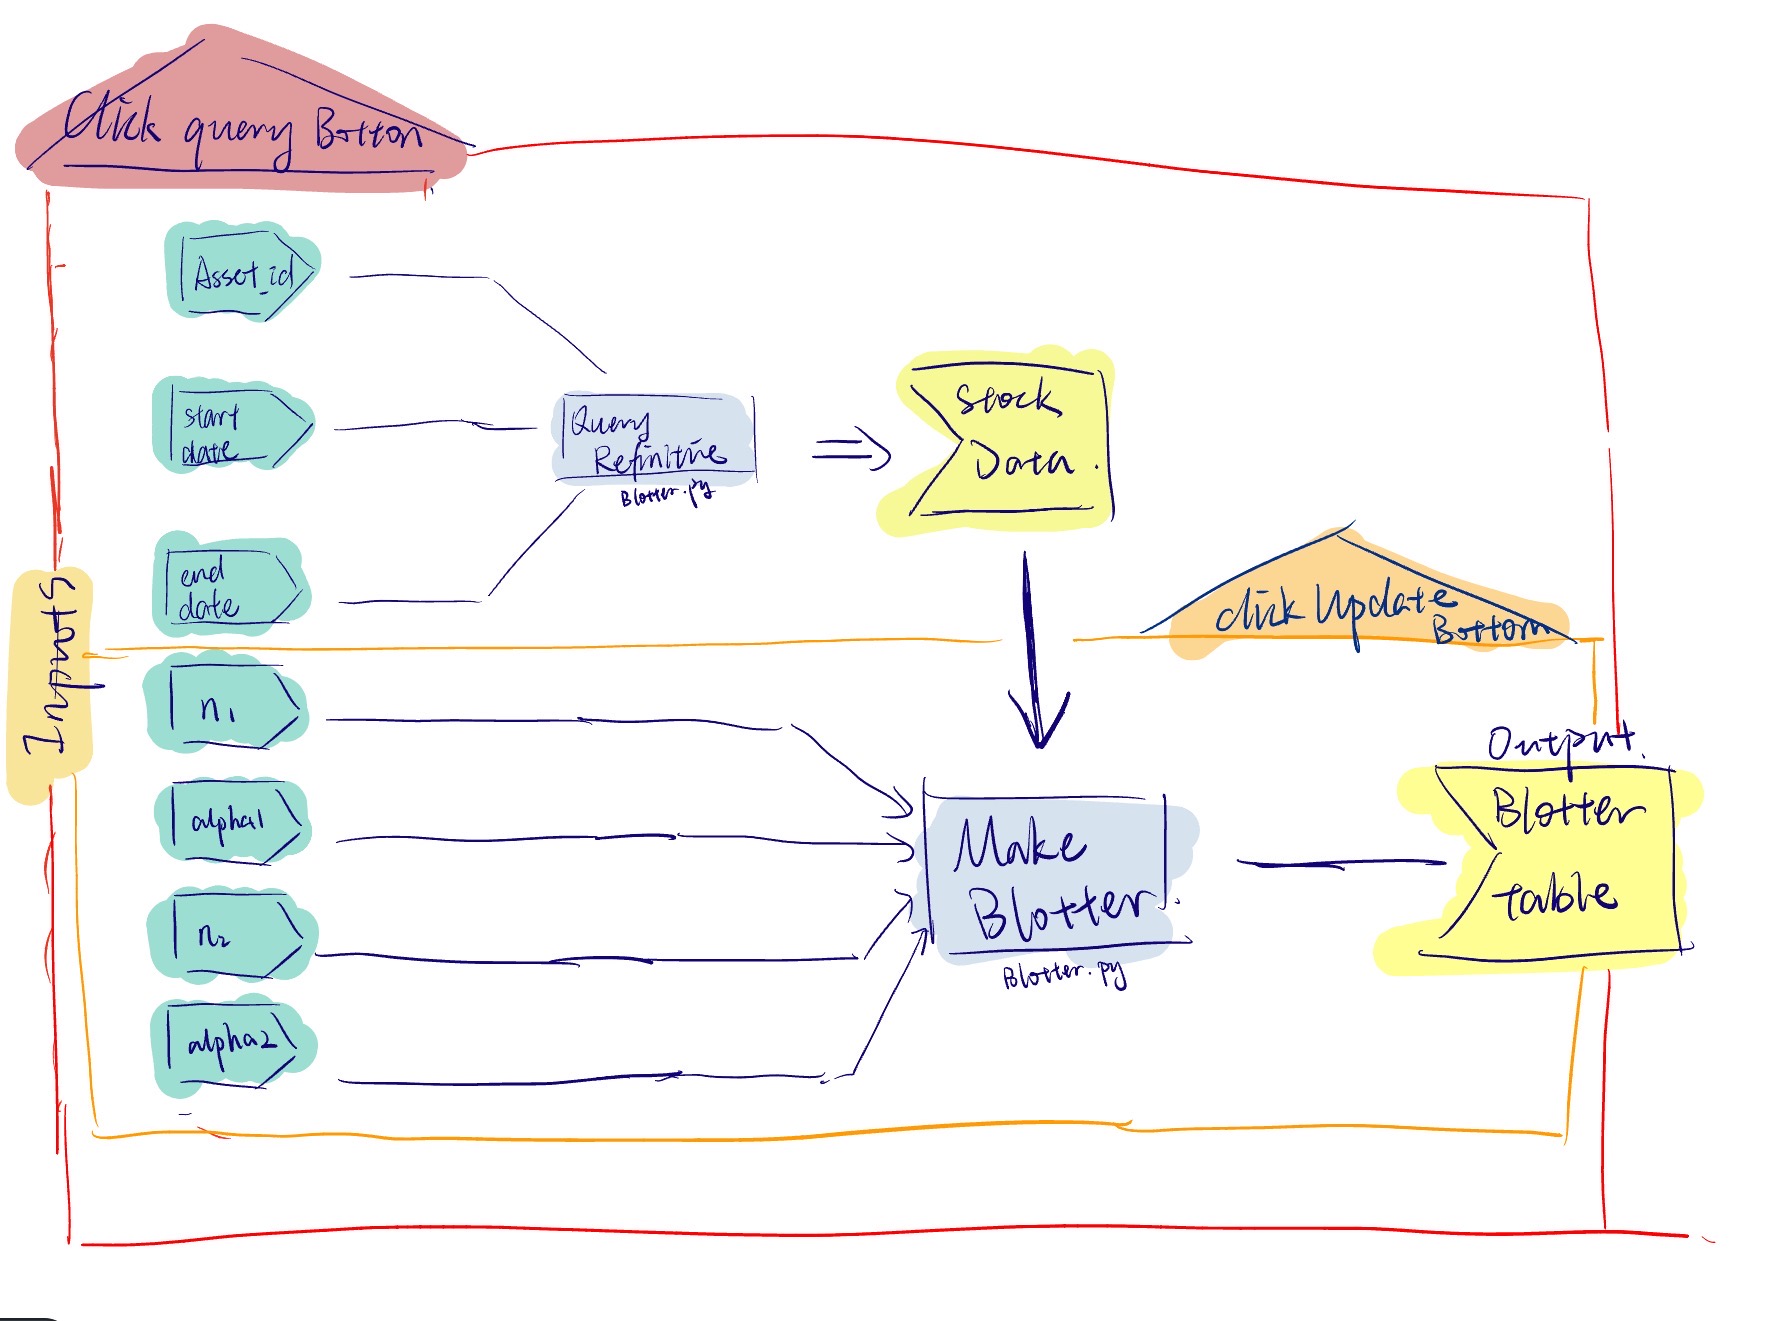 Click query Botton
Asset_id
start
date
end
date
Query
Refinitive
Blotter.py
Stock
Data.
Click Update
Bottom
Inputs
n1
alpha1
n2
alpha2
Make
Blotter.
Blotter.py
Output.
Blotter
table